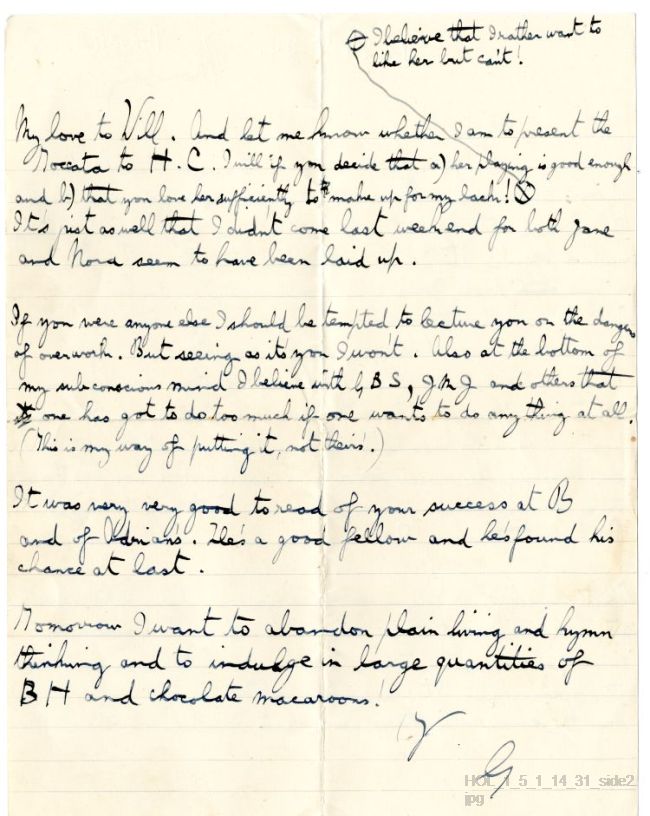 ⊗ I believe that I rather want to
like her but can't!
My love to Vilf. And let me know whether I am to present the
Toccata to H.C. I will if you decide that a) her playing is good enough
and b) that you love her sufficiently to make up for my lack! ⊗
It's just as well that I didn't come last weekend for both Jane
and Nora seem to have been laid up.
If you were anyone else I should be tempted to lecture you on the dangers
of overwork. But seeing as it's you I won't. Also at the bottom of
my subconscious mind I believe with G B S, J M J and others that
one has got to do too much if one wants to do any thing at all.
(This is my way of putting it, not theirs.)
It was very very good to read of your success at B
and of Adrian's. He's a good fellow and he's found his
chance at last.
Tomorrow I want to abandon plain living and hymn
thinking and to indulge in large quantities of
B H and chocolate macaroons!
G
HOL_1_5_1_14_31_side2.
jpg